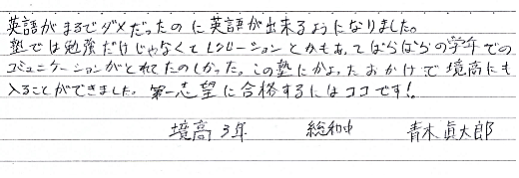 英語がまるでダメだったのに英語が出来るようになりました。
塾では勉強だけじゃなくてレクレーションとかもあってばらばらの学年での
コミュニケーションがとれてたのしかった。この塾にかよったおかげで境高にも
入ることができました。第一志望に合格するにはココです!
境高3年 総和中 青木真太郎